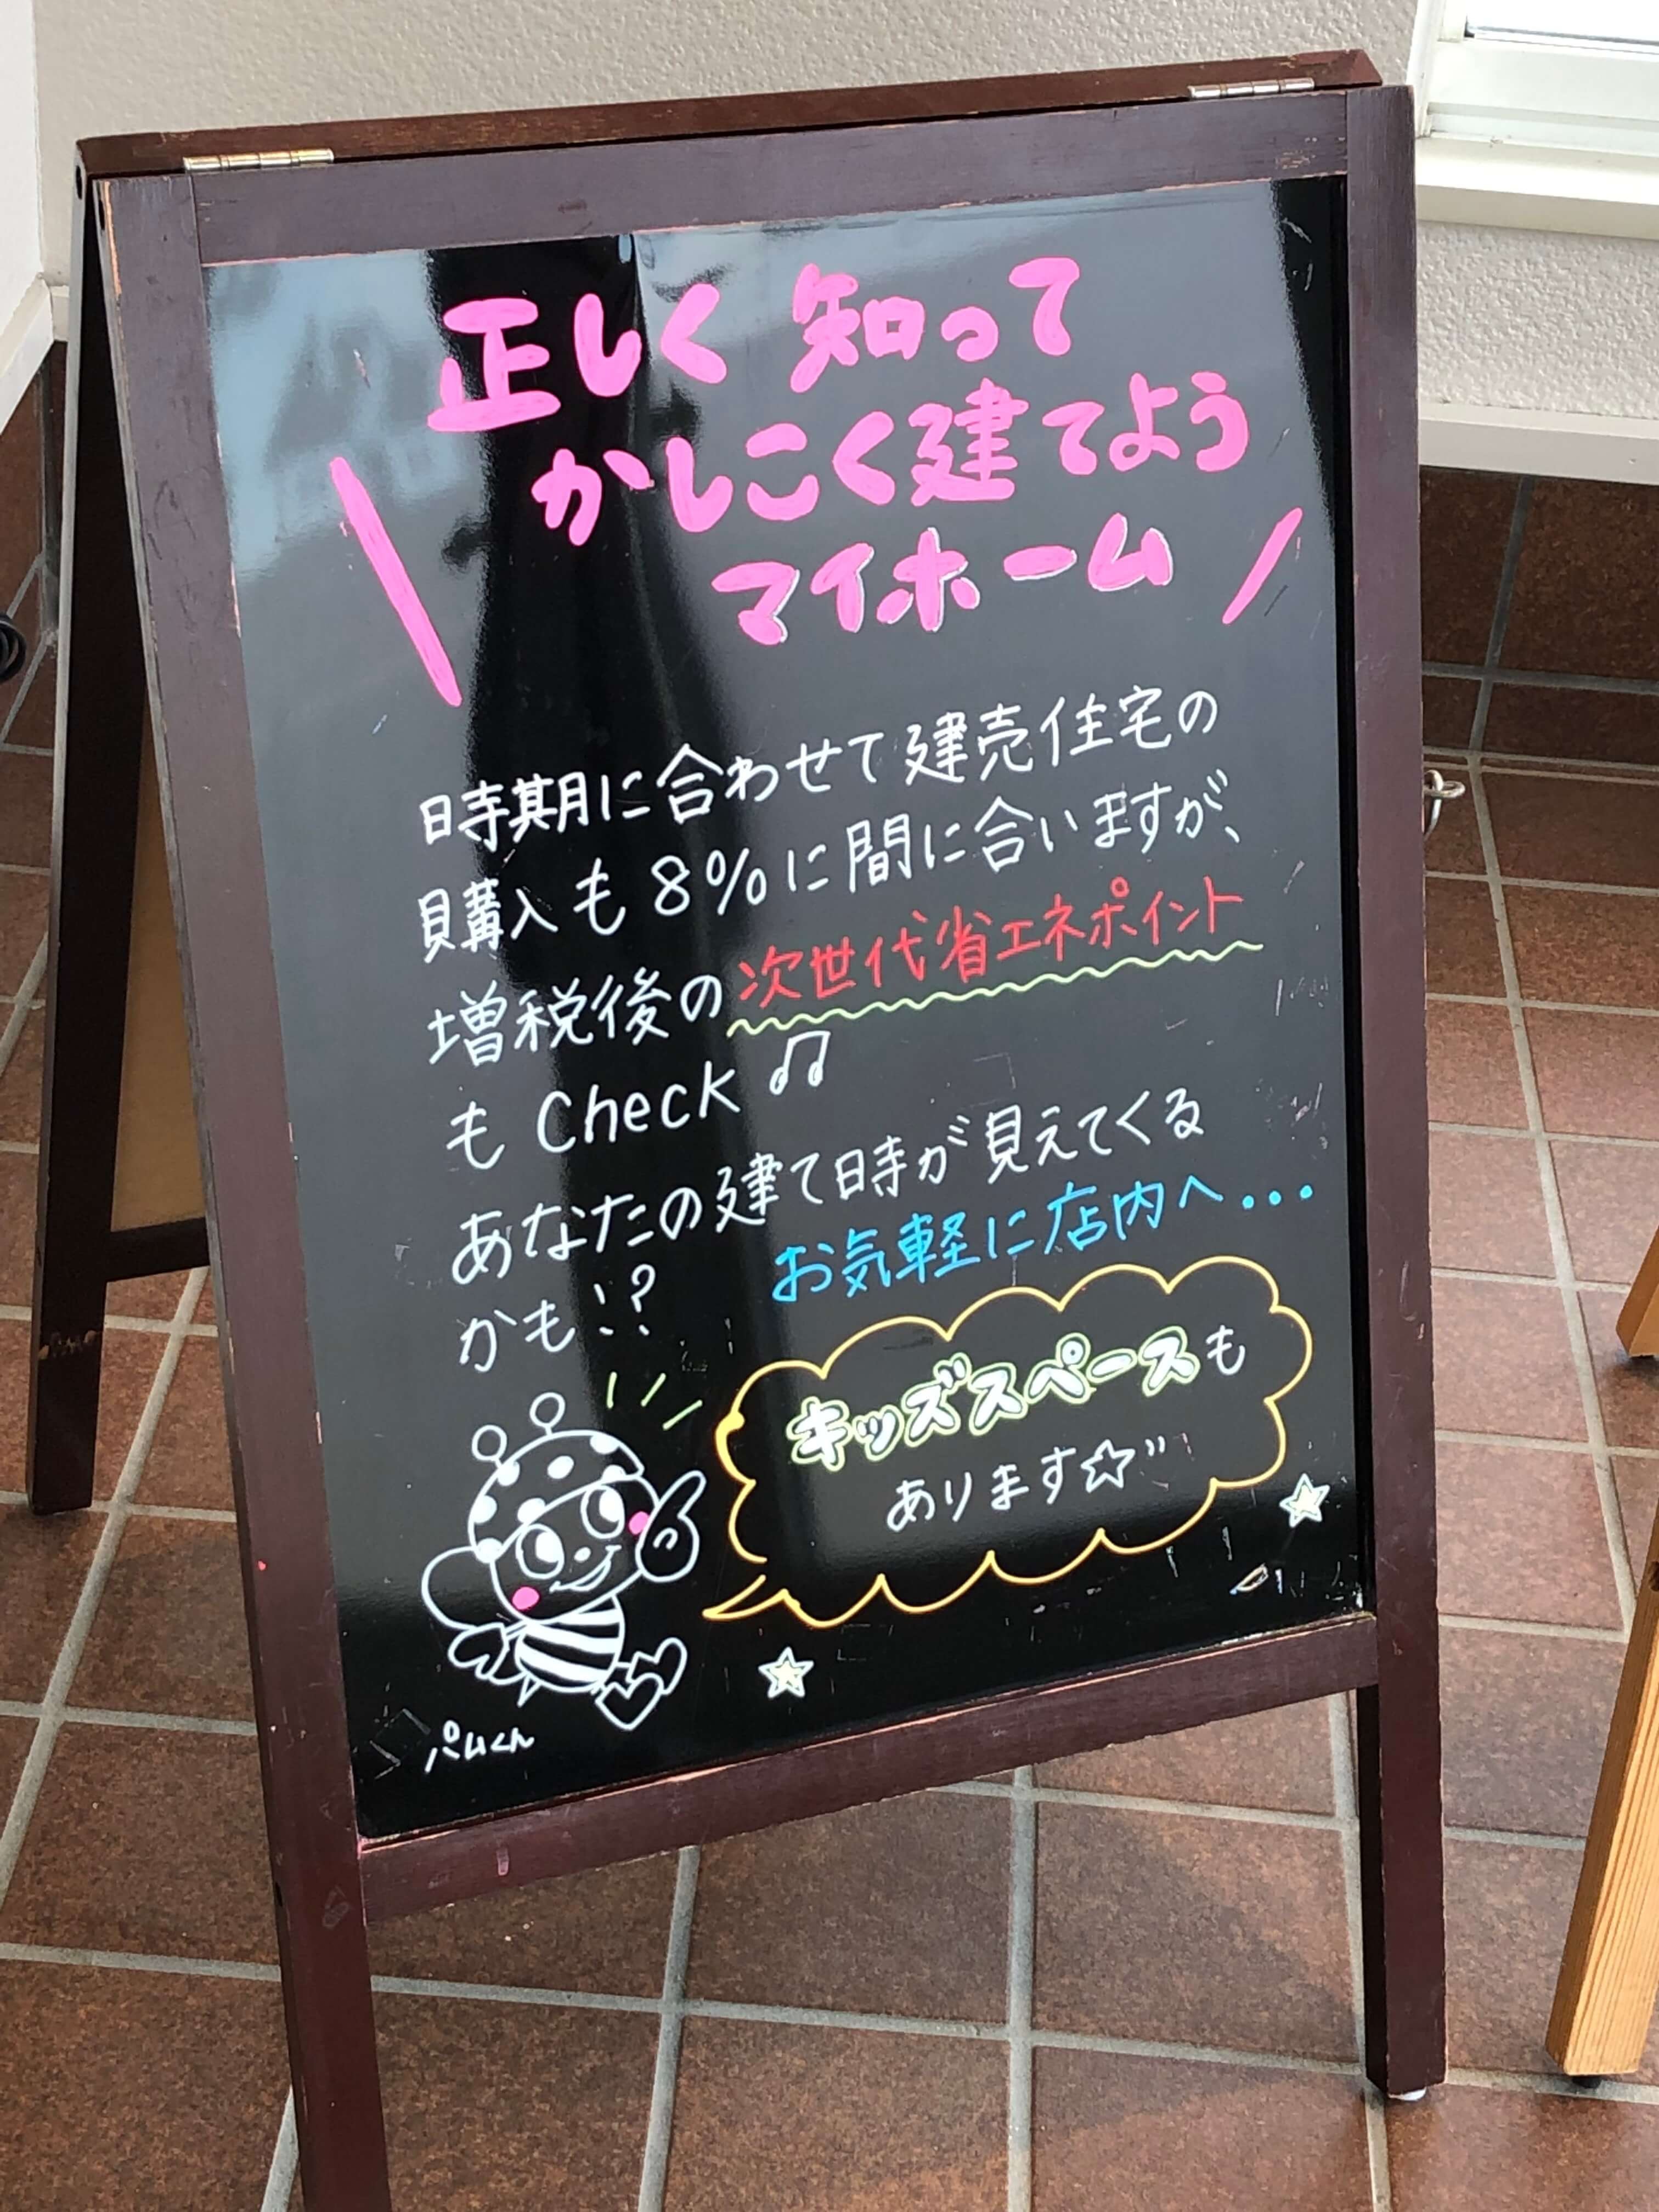 正しく知って
かしこく建てよう
マイホーム
時期に合わせて建売住宅の
購入も8%に間に合いますが、
増税後の次世代省エネポイント
もCheck♫
あなたの建て時が見えてくる
かも!?
お気軽に店内へ...
キッズスペースも
あります☆"
パムくん